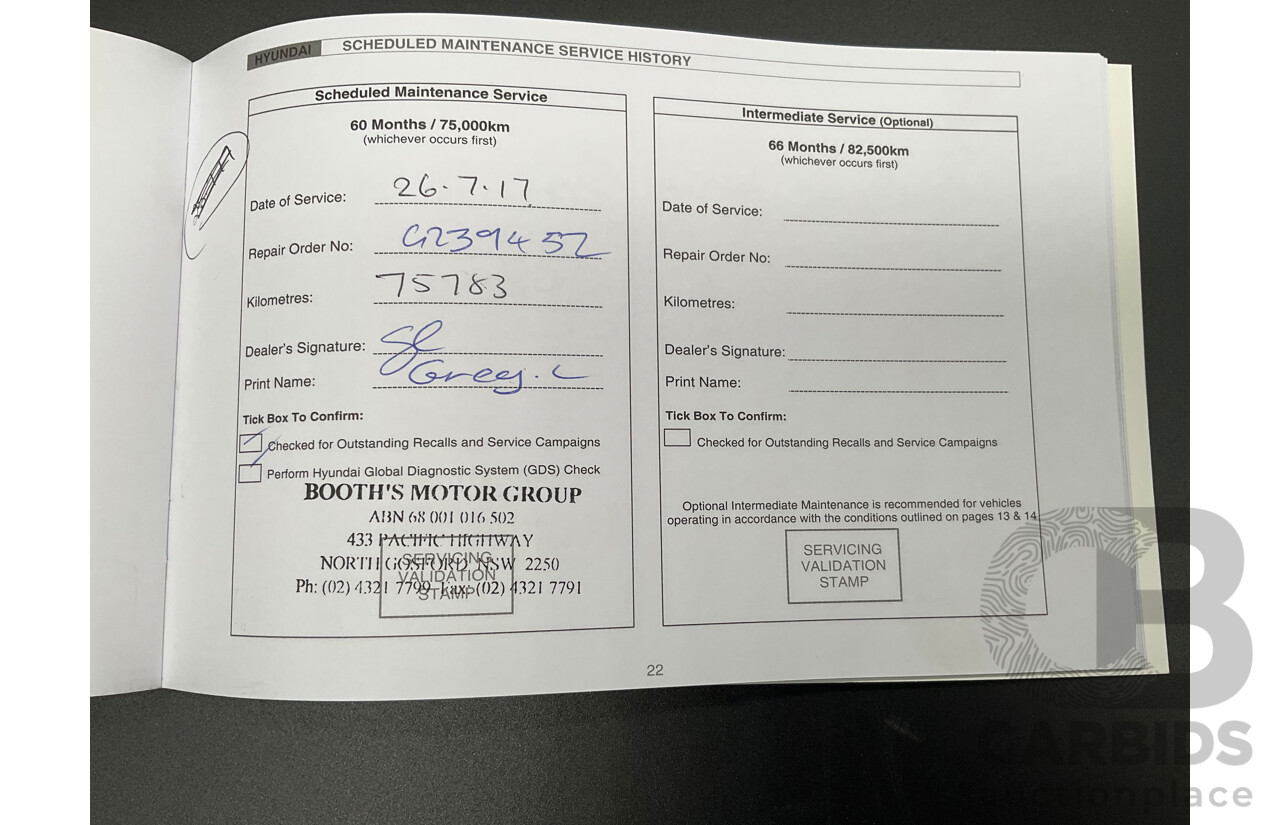 HYUNDAI SCHEDULED MAINTENANCE SERVICE HISTORY
Scheduled Maintenance Service
60 Months / 75,000km
(whichever occurs first)
Date of Service: 26.7.17
Repair Order No: G239452
Kilometres: 75783
Dealer's Signature:
Print Name: Greg. L
Tick Box To Confirm:
Checked for Outstanding Recalls and Service Campaigns
Perform Hyundai Global Diagnostic System (GDS) Check
BOOTH'S MOTOR GROUP
ABN 68 001 016 502
433 PACIFIC HIGHWAY
NORTH GOSFORD NSW 2250
Ph: (02) 4321 7799 Fax: (02) 4321 7791
SERVICING
VALIDATION
STAMP
Intermediate Service (Optional)
66 Months / 82,500km
(whichever occurs first)
Date of Service:
Repair Order No:
Kilometres:
Dealer's Signature:
Print Name:
Tick Box To Confirm:
Checked for Outstanding Recalls and Service Campaigns
Optional Intermediate Maintenance is recommended for vehicles
operating in accordance with the conditions outlined on pages 13 & 14.
SERVICING
VALIDATION
STAMP
22
CARBIDS